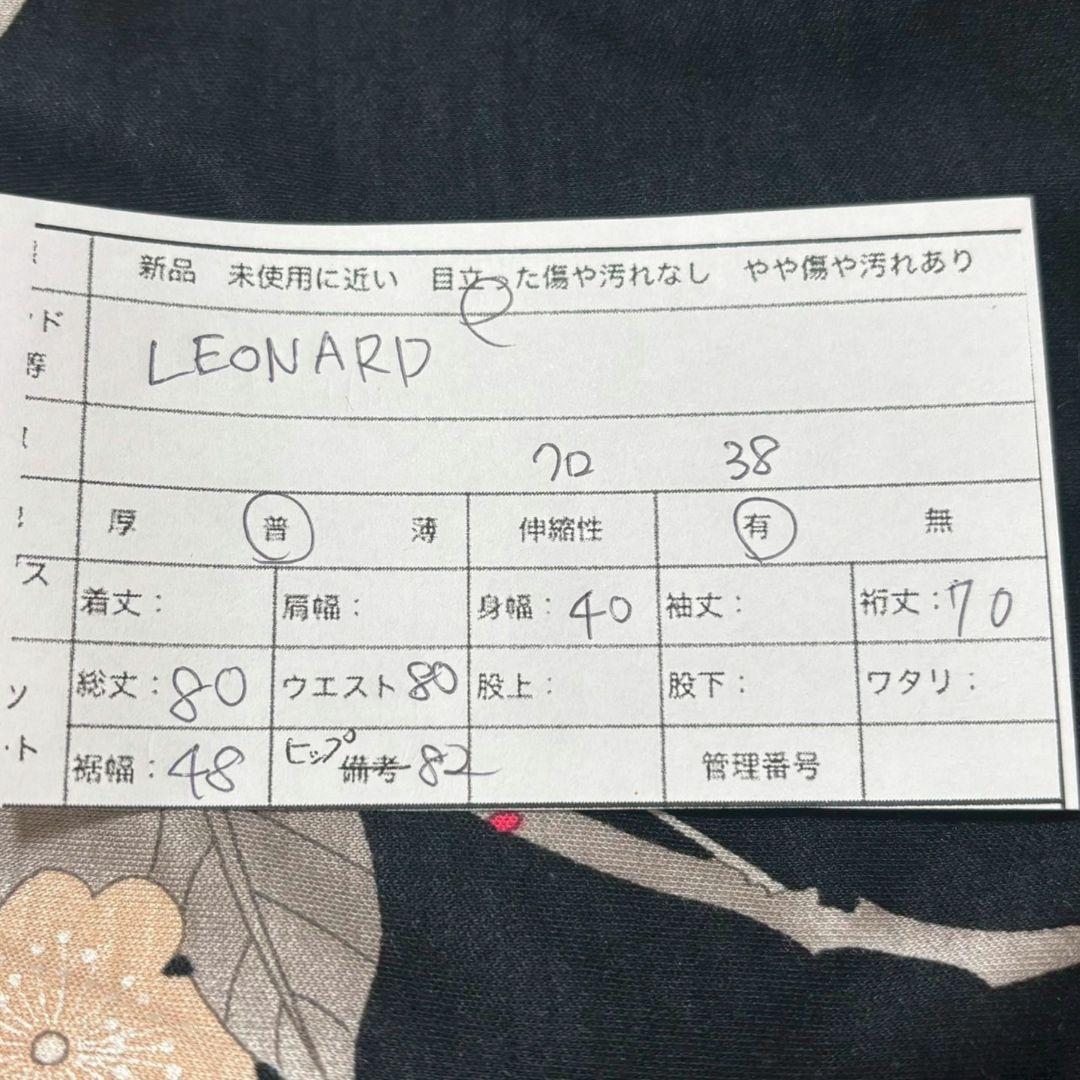 新品 未使用に近い 目立った傷や汚れなし やや傷や汚れあり
ド LEONARD
摩
クロ 38
厚 普 薄 伸縮性 有 無
ス 着丈： 肩幅： 身幅：40 袖丈： 裄丈：70
ソ 総丈：80 ウエスト 80 股上： 股下： ワタリ：
ト 裾幅：48 ヒップ 備考 82 管理番号